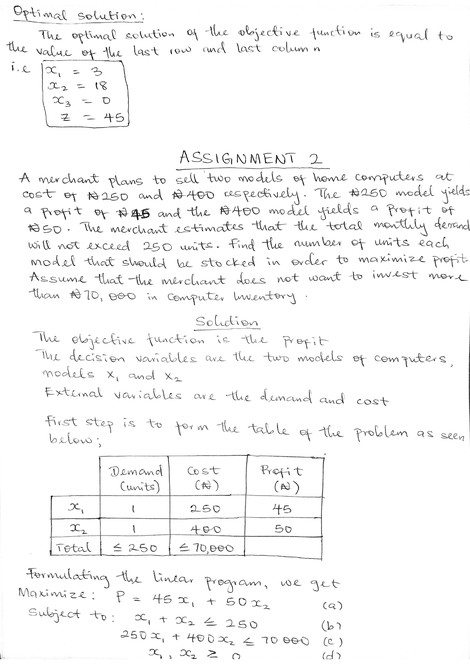 Optimal solution:
The optimal solution of the objective function is equal to
the value of the last row and last column
i.e x₁ = 3
x₂ = 18
x₃ = 0
Z = 45
ASSIGNMENT 2
A merchant plans to sell two models of home computers at
cost of ₦250 and ₦400 respectively. The ₦250 model yields
a profit of ₦45 and the ₦400 model yields a profit of
₦50. The merchant estimates that the total monthly demand
will not exceed 250 units. Find the number of units each
model that should be stocked in order to maximize profit
Assume that the merchant does not want to invest more
than ₦70,000 in computer Inventory.
Solution
The objective function is the profit
The decision variables are the two models of computers,
models x₁ and x₂
External variables are the demand and cost
first step is to form the table of the problem as seen
below;
Demand (units) Cost (₦) Profit (₦)
x₁ 1 250 45
x₂ 1 400 50
Total ≤ 250 ≤ 70,000
Formulating the linear program, we get
Maximize: P = 45x₁ + 50x₂ (a)
Subject to: x₁ + x₂ ≤ 250 (b)
250x₁ + 400x₂ ≤ 70 000 (c)
x₁, x₂ ≥ 0 (d)